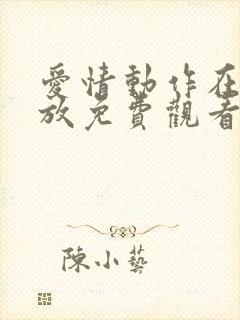 愛情動作在
放免費觀看
陳小藝